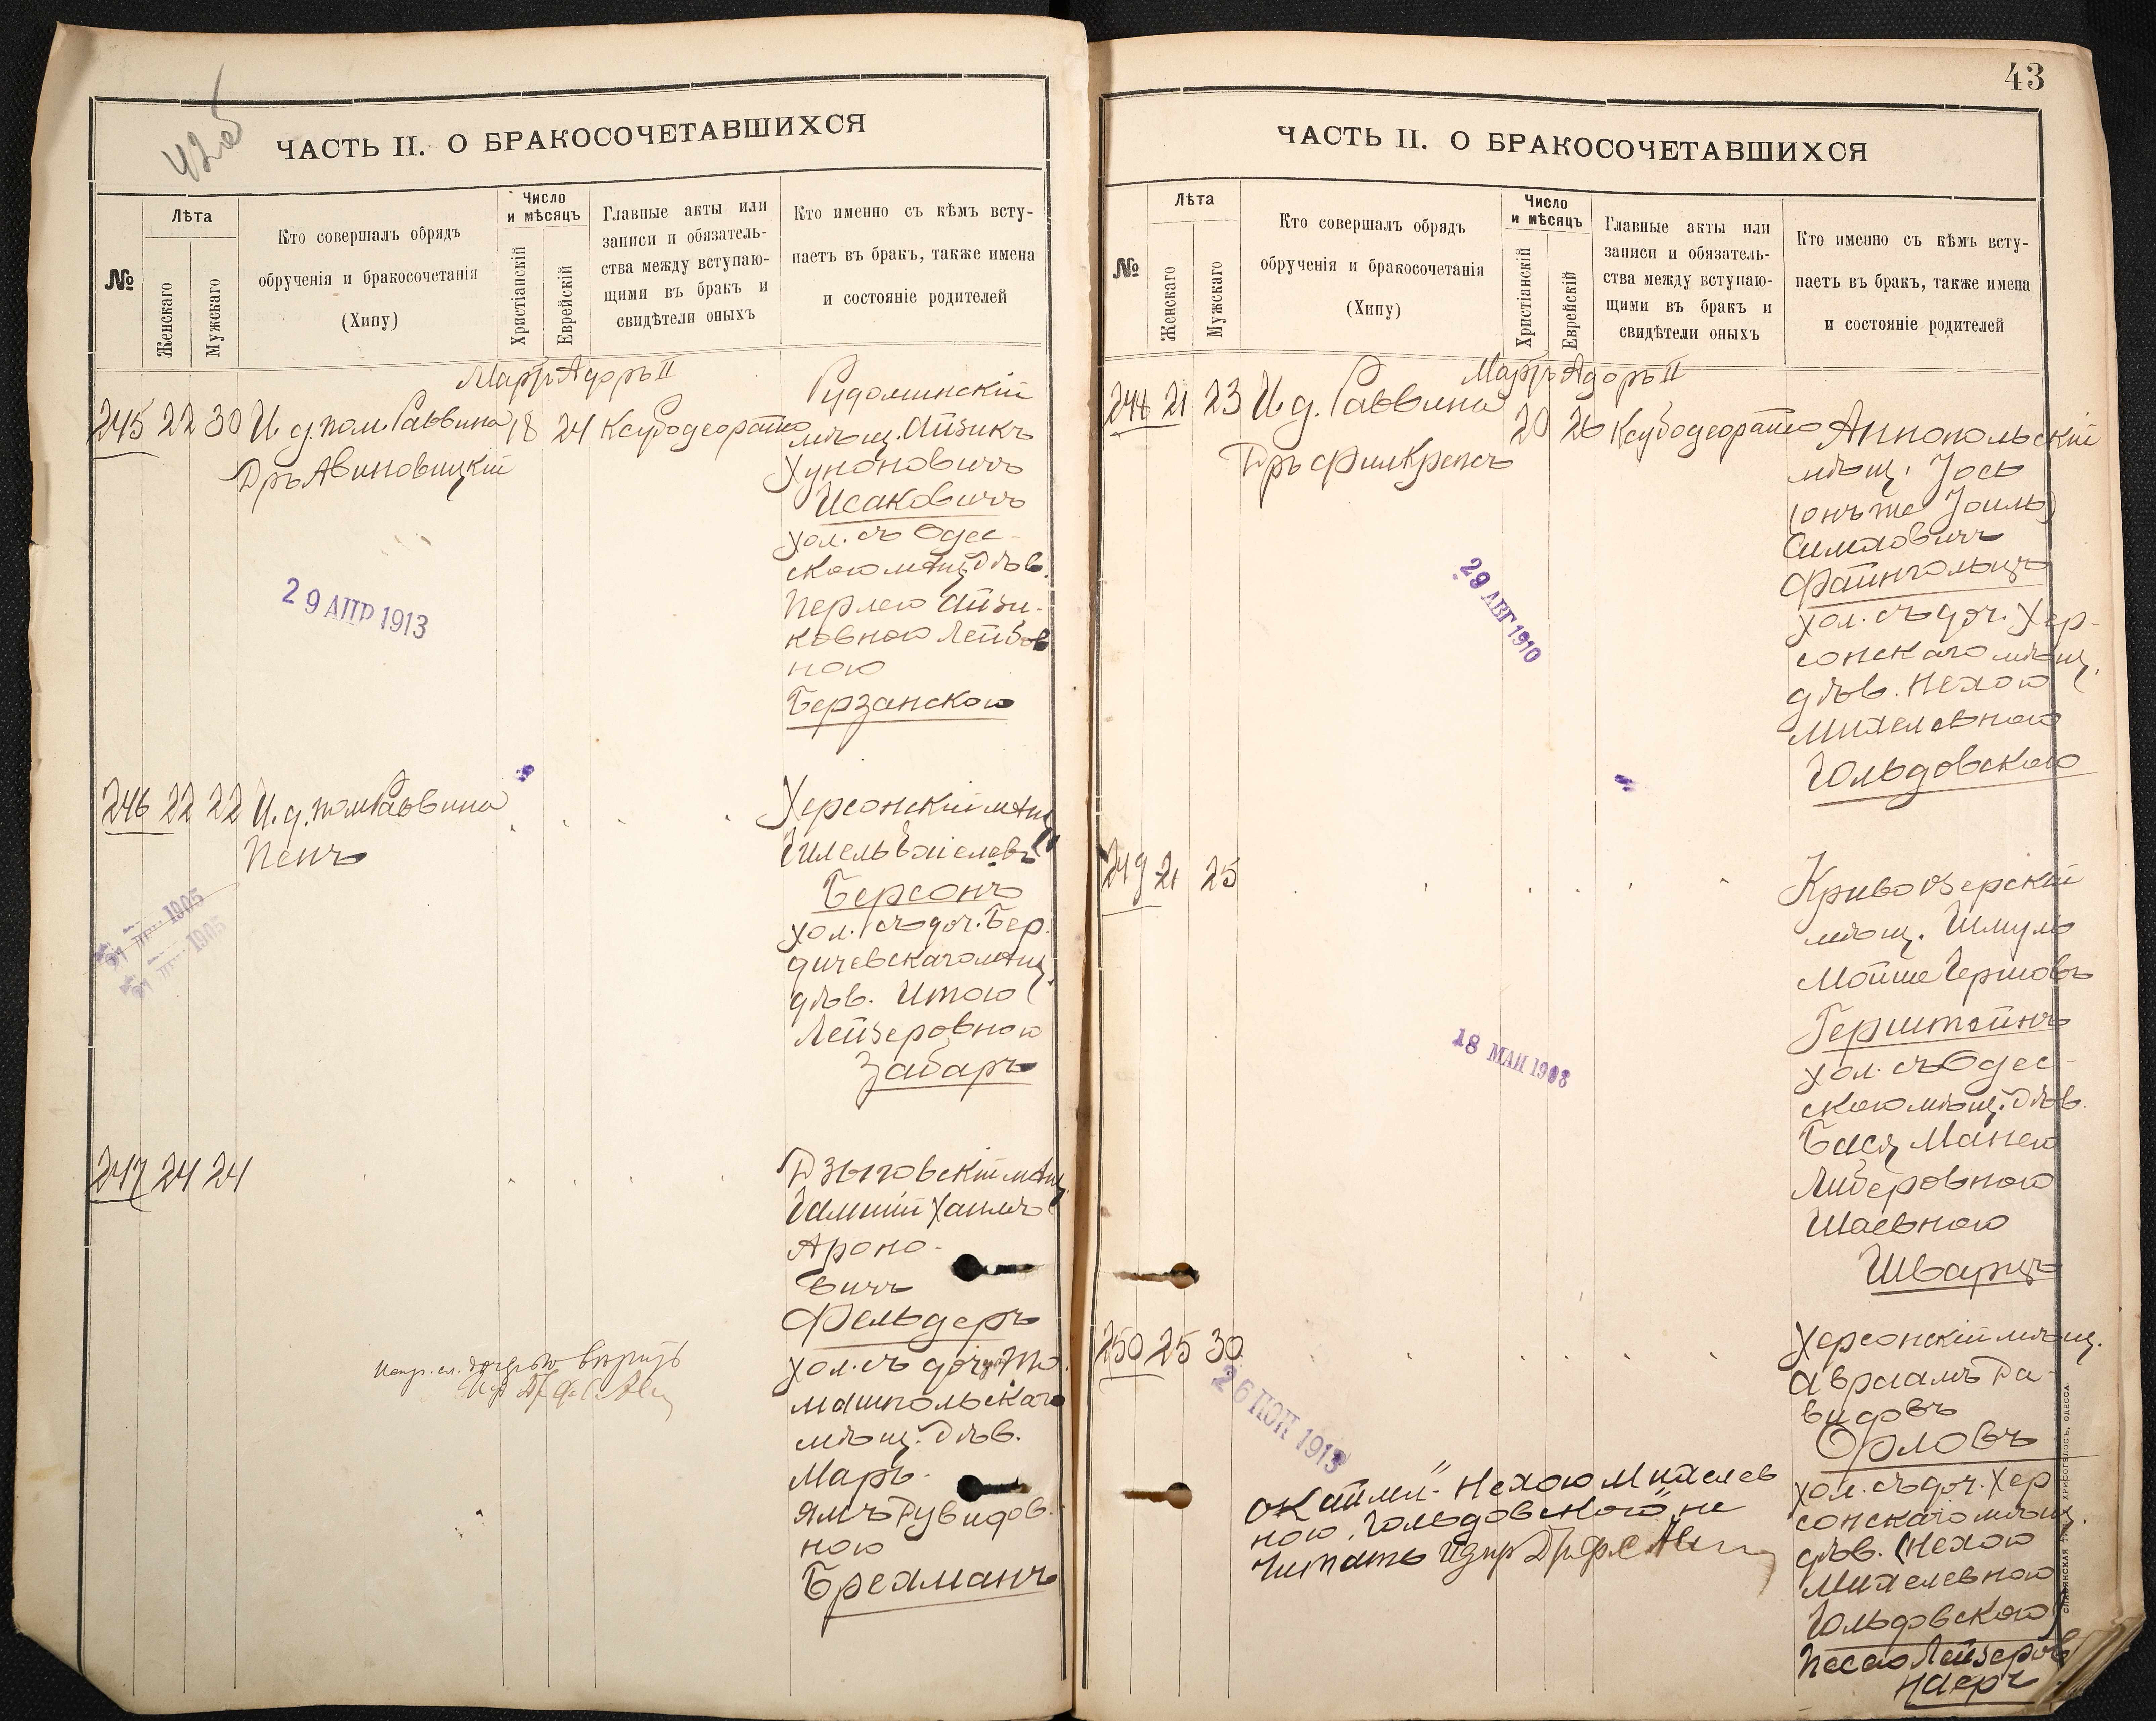 42об
ЧАСТЬ II. О БРАКОСОЧЕТАВШИХСЯ
№
Лѣта
Женскаго
Мужскаго
Кто совершалъ обрядъ
обрученія и бракосочетанія
(Хипу)
Число
и мѣсяцъ
Христіанскій
Еврейскій
Главные акты или
записи и обязатель-
ства между вступаю-
щими въ бракъ и
свидѣтели оныхъ
Кто именно съ кѣмъ всту-
паетъ въ бракъ, также имена
и состояніе родителей
Мартъ Адоръ II
245 22 30 И. д. пом. Раввина 18 24
Дръ Авиновицкій
Рудоминскій
мѣщ. Айзикъ
Хуноновичъ
Исаковичъ
хол. съ Одес-
скою мѣщ. дѣв.
Перлею Айзи-
ковною Лейбов
ною
Берзанскою
29 АПР 1913
246 22 22 И. д. пом Раввина
Пенъ
Херсонскій мѣщ
Гилель
Берсонъ
хол. съ доч. Бер
дичевскаго мѣщ.
дѣв. Итою
Лейзеровною
Забаръ
1905
1905
247 24 24
Дзыговскій мѣщ
Хаимъ
Ароно-
вичъ
Фельдеръ
хол. съ доч. То
машпольскаго
мѣщ. дѣв.
Марь-
ямъ Рувидов.
ною
Брехманъ
вѣрить
43
ЧАСТЬ II. О БРАКОСОЧЕТАВШИХСЯ
№
Лѣта
Женскаго
Мужскаго
Кто совершалъ обрядъ
обрученія и бракосочетанія
(Хипу)
Число
и мѣсяцъ
Христіанскій
Еврейскій
Главные акты или
записи и обязатель-
ства между вступаю-
щими въ бракъ и
свидѣтели оныхъ
Кто именно съ кѣмъ всту-
паетъ въ бракъ, также имена
и состояніе родителей
Мартъ Адоръ II
248 21 23 И. д. Раввина 20 26
Дръ Фил Крепсъ
Аннопольскій
мѣщ. Іось
(онъ же Іоиль)
Симховичъ
Файнгольцъ
хол. съ доч. Хер-
сонскаго мѣщ.
дѣв. Нехою
Михелевною
Гольдовскою
29 АВГ 1910
249 21 25
Кривоозерскій
мѣщ. Шмуль
Мойше Гершовъ
Герштейнъ
хол. съ Одес-
скою мѣщ. дѣв.
Бася Манею
Либеровною
Шаевною
Шварцъ
18 МАЙ 1908
250 25 30
Херсонскій мѣщ.
Авраамъ Да-
видовъ
Орловъ
хол. съ доч. Хер
сонскаго мѣщ.
дѣв. (Нехою
Михелевною
Гольдовскою)
Песею Лейзеров
26 1913
Нехою Михелев
ною Гольдовскою" не
читать